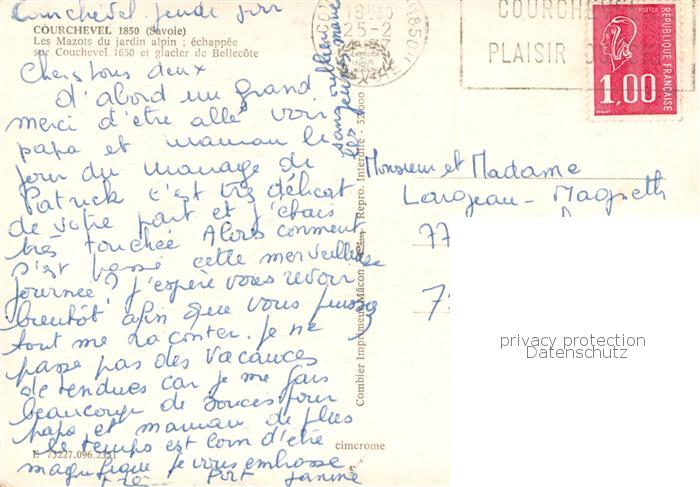 Courchevel jeudi soir
COURCHEVEL 1850 (Savoie)
Les Mazots du jardin alpin ; échappée
sur Couchevel 1650 et glacier de Bellecôte
Chers tous deux
d'abord un grand
merci d'être allé voir
papa et maman le
jour du mariage de
Patrick c'est très délicat
de votre part et j'étais
très touchée Alors comment
s'est passé cette merveilleuse
journée? j'espère vous revoir
bientôt afin que vous puissiez
tout me raconter. Je ne
passe pas des vacances
détendues car je me fais
beaucoup de soucis pour
papa et maman de plus
le temps est loin d'être
magnifique je vous embrasse
très fort Janine
E 73227.096.2351
cimcrome
Combier Imprimeur Mâcon
Repro. Interdite - 352000
18 30
25-2
COURCHEVEL
PLAISIR
POSTES
RÉPUBLIQUE FRANÇAISE
1,00
Monsieur et Madame
Largeau - Magneth
77
7
privacy protection
Datenschutz